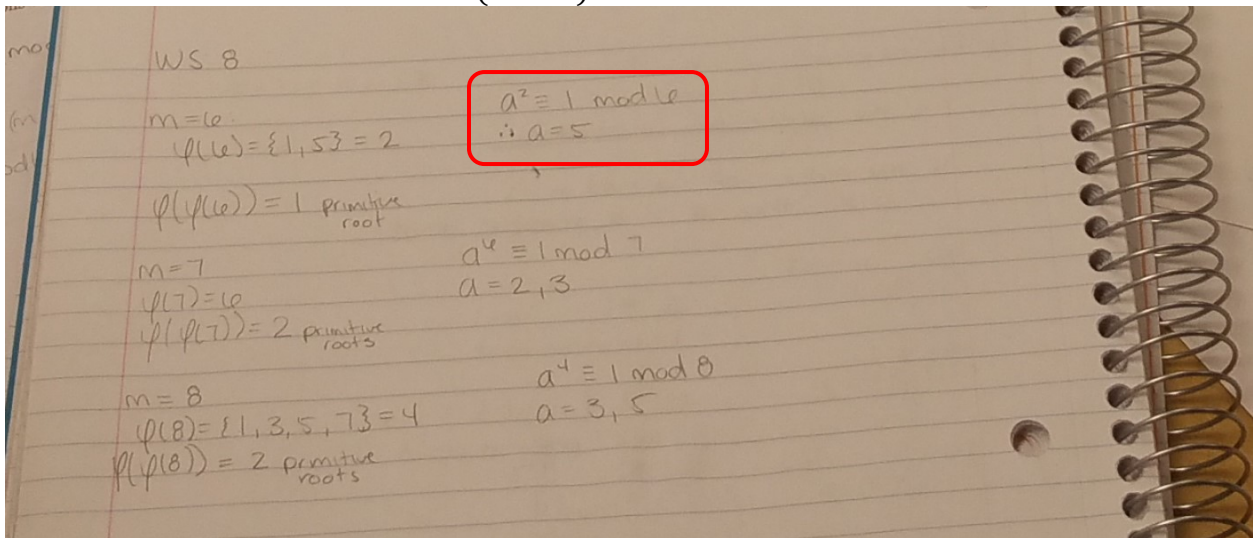 WS 8
m=6
φ(6)={1,5}=2
a² ≡ 1 mod 6
∴ a=5
φ(φ(6))=1 primitive root
m=7
φ(7)=6
φ(φ(7))=2 primitive roots
a⁶ ≡ 1 mod 7
a=2,3
m=8
φ(8)={1,3,5,7}=4
φ(φ(8))=2 primitive roots
a⁴ ≡ 1 mod 8
a=3,5